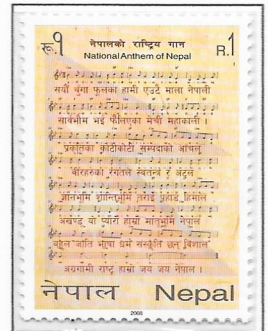 रू.१ नेपालको राष्ट्रिय गान R.1
National Anthem of Nepal
सयौं थुंगा फूलका हामी एउटै माला नेपाली
सार्वभौम भई फैलिएका मेची महाकाली ।
प्रकृतिका कोटीकोटी सम्पदाको आँचल
वीरहरुका रगतले स्वतन्त्र र अटल
ज्ञानभूमि शान्तिभूमि तराई पहाड हिमाल
अखण्ड यो प्यारो हाम्रो मातृभूमि नेपाल
बहुल जाति भाषा धर्म संस्कृति छन् विशाल
अग्रगामी राष्ट्र हाम्रो जय जय नेपाल ।
नेपाल Nepal
2008